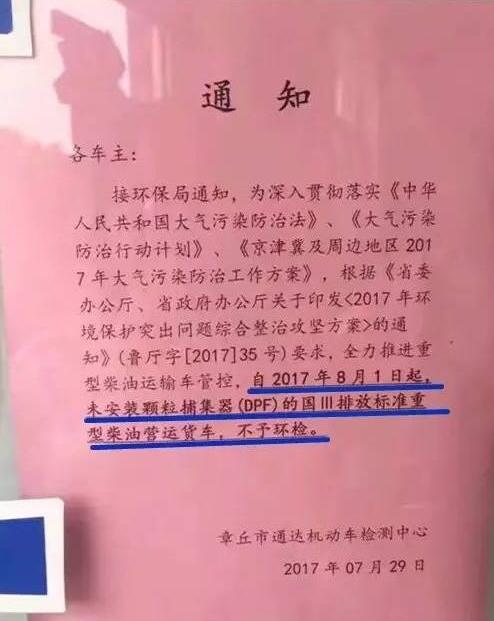 通 知
各车主：
接环保局通知，为深入贯彻落实《中华
人民共和国大气污染防治法》、《大气污染
防治行动计划》、《京津冀及周边地区 201
7 年大气污染防治工作方案》，根据《省委
办公厅、省政府办公厅关于印发<2017 年环
境保护突出问题综合整治攻坚方案>的通
知》(鲁厅字[2017]35 号)要求，全力推进重
型柴油运输车管控，自 2017 年 8 月 1 日起，
未安装颗粒捕集器(DPF)的国III排放标准重
型柴油营运货车，不予环检。
章丘市通达机动车检测中心
2017 年 07 月 29 日